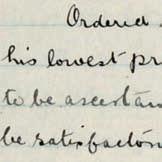 Ordered
his lowest pr
to be ascertain
be satisfactor